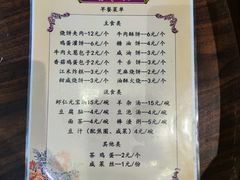 早餐菜单
主食类
烧饼夹肉—12元/个 牛肉酥饼—6元/个
鸡蛋灌饼—6元/个 糖油饼—4元/个
牛肉大葱包子—2元/个 咸油饼—4元/个
香菇鸡蛋包子—2元/个 牛舌饼—3元/个
江米炸糕—3元/个 芝麻烧饼—2元/个
椒盐烧饼—3元/个 油酥火烧—3元/个
流食类
虾仁元宝馄饨15元/碗 羊杂汤—15元/碗
豆腐脑—5元/碗 南豆浆—3元/碗
面茶—4元/碗 棒渣粥—5元/碗
豆汁（配焦圈、咸菜）—4元/碗
其他类
茶鸡蛋—2元/个
咸菜丝—1元/份